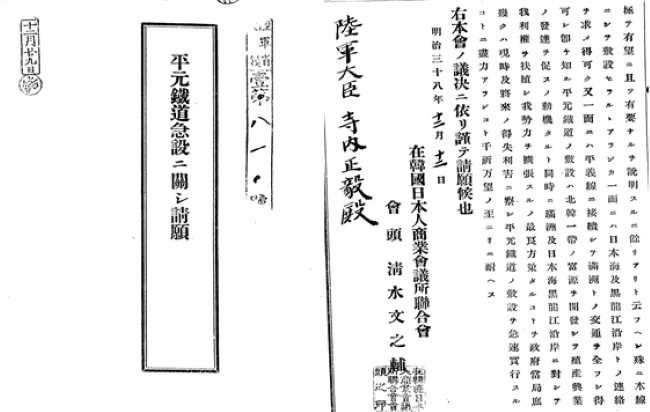 極テ有望ニ且ツ有要ナルヲ説明スルニ餘リアリト云フヘシ殊ニ本線
ニシテ敷設セラルヽアランカ一面ニハ日本海及黒龍江沿岸トノ連絡
ヲ求メ得可ク又一面ニハ平義線ニ接續シテ滿洲トノ交通ヲ全フシ得
可シ卽ケ知ル平元鐵道ノ敷設ハ北韓一帶ノ富源ヲ開發シテ殖産興業
ノ發達ヲ促スノ動機タルト同時ニ滿洲及日本海黒龍江沿岸ニ對シテ
我利權ヲ扶植シ我勢力ヲ擴張スルノ最良方策タルコトヲ政府當局庶
幾クハ現時及將來ノ得失利害ニ察シ平元鐵道ノ敷設ヲ急速實行スル
コトニ盡力アランコト千祈万望ノ至ニリニ耐ヘス
右本會ノ議決ニ依リ謹テ請願候也
明治三十八年十二月十二日
在韓國日本人商業會議所聯合會
會頭 淸水文之輔
陸軍大臣 寺内正毅殿
壹第八一
平元鐵道急設ニ關シ請願
十二月廿九日